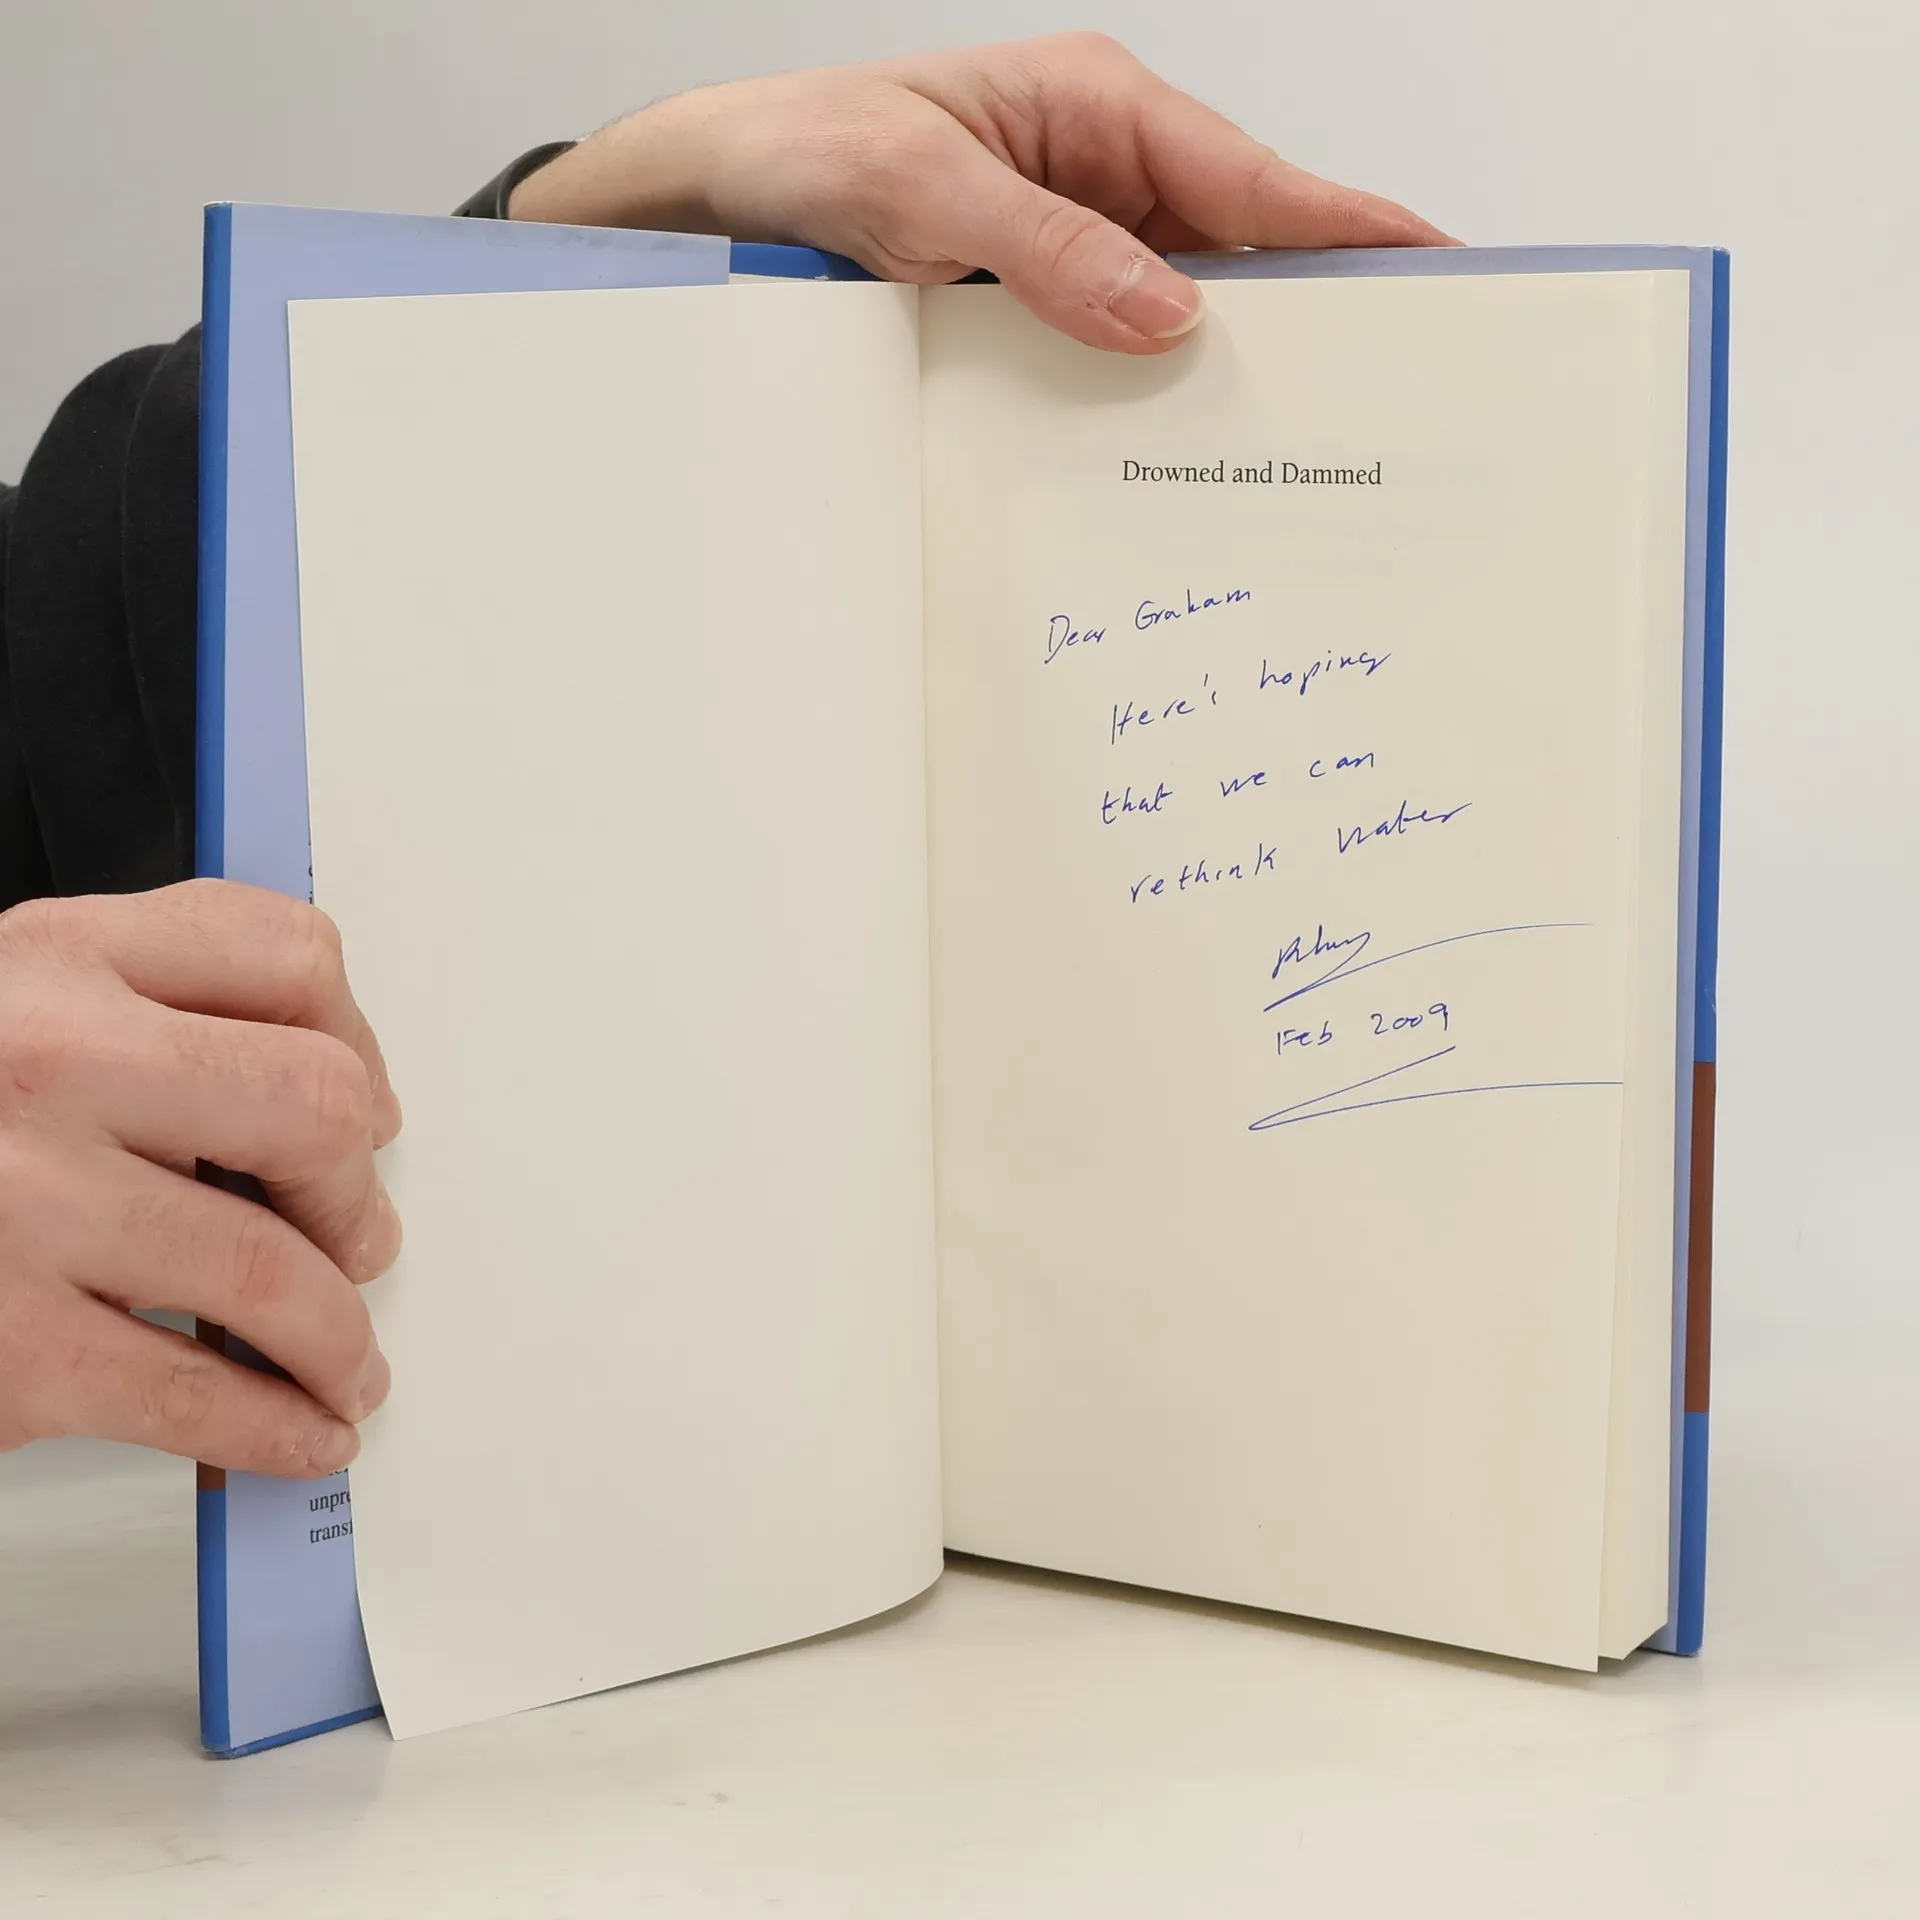 Drowned and Dammed
Dear Graham
Here's hoping
that we can
rethink water
Feb 2009
unpre
transf